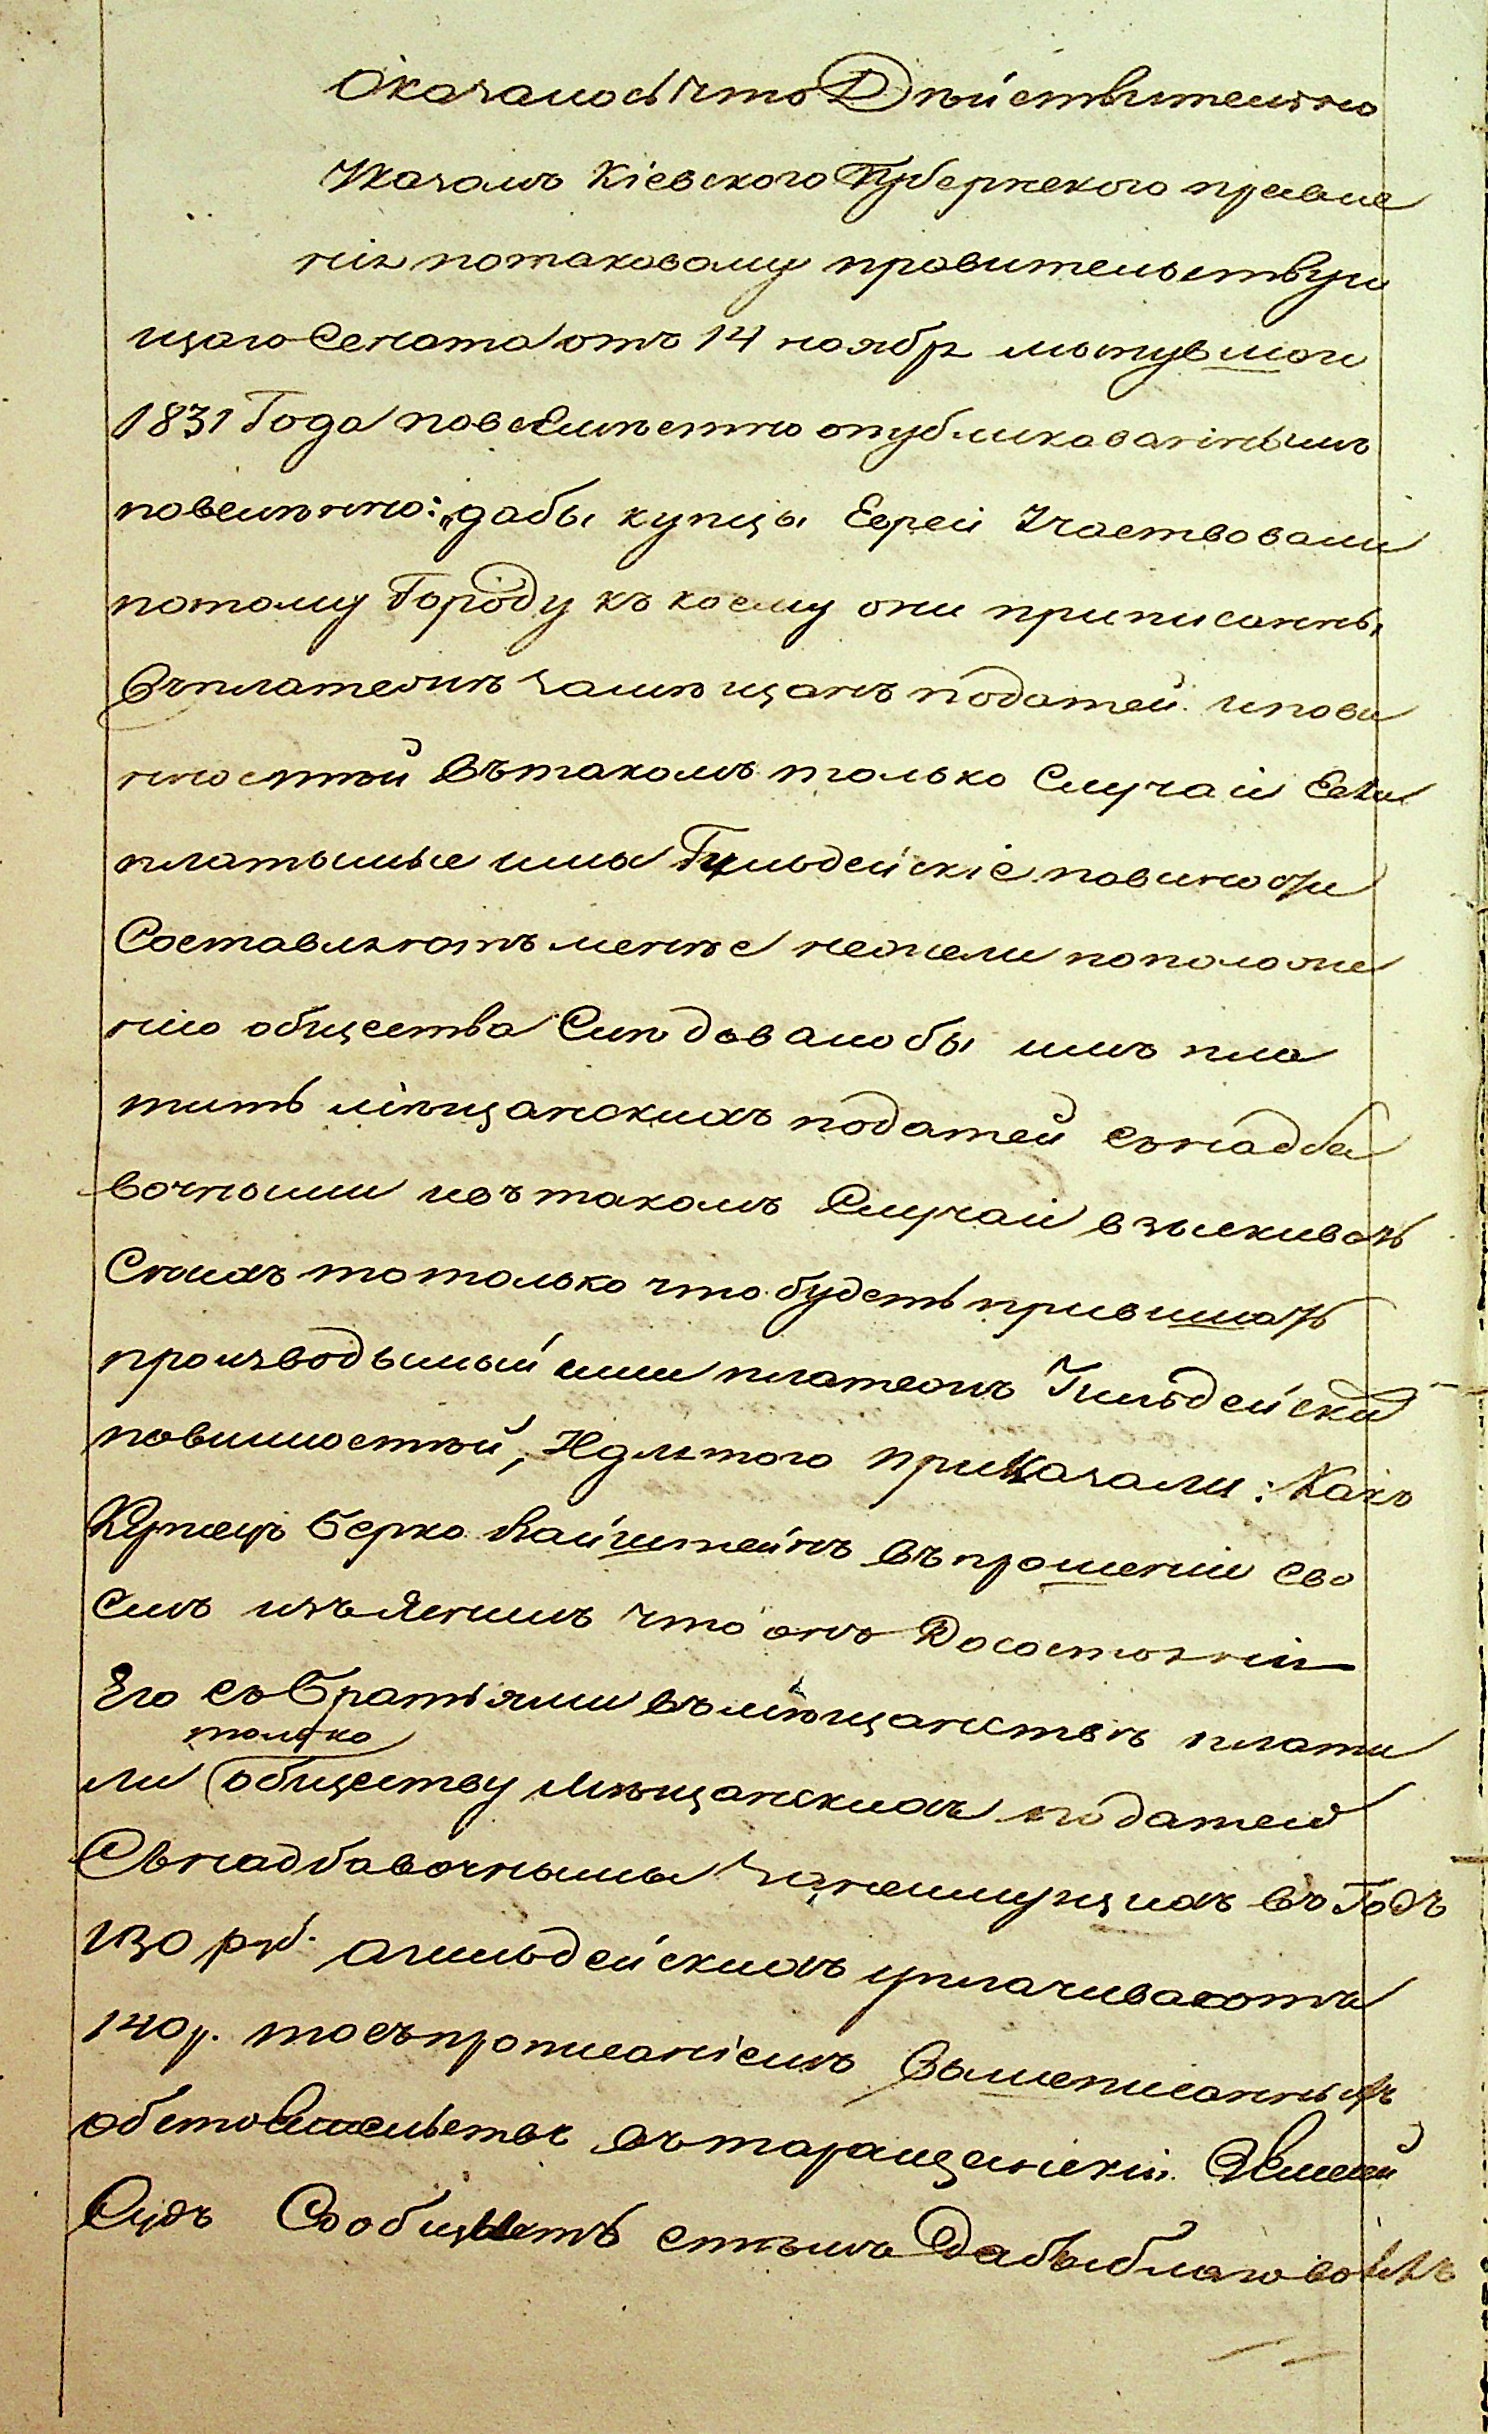 Оказалось что Дѣйствительно
Указомъ Кіевского Губернского правле
нія потаковому правительствую
щаго Сената отъ 14 ноябр минувшаго
1831 Года повсемѣстно опубликованнымъ
повелѣнно: „дабы купцы Евреи Участвовали
потому Городу къ коему они приписанны
Въплатежѣ замѣщанъ податей ипови
нностей Вътакомъ только Случаи Если
платымые ими Гильдейскіе повиности
Составляютъ менѣе нежели поположе
нію общества Слѣдовалобы имъ пла
тить мѣщанскихъ податей снадба
вочными ивътакомъ Случаи взыскивать
Снихъ тотолько что будетъ превишать
производымый ими платежъ Гильдейских
повинностей, Идлятого приказали: Какъ
Купецъ Берко Вайнштейнъ въпрошеніи сво
емъ изъяснилъ что онъ Досостояній
Его съ Братьями въмѣщанствѣ плати
только
ли обществу Мѣщанскихъ податей
Снадбавочными занеимущихъ въ Годъ
130 руб. агильдейскихъ уплачиваютъ
140 р. тосъпрописаніемъ Вышеписанныхъ
обстоятельствъ въ таращанскій Земскій
Судъ Сообщить стѣмъ Дабыблаговолилъ